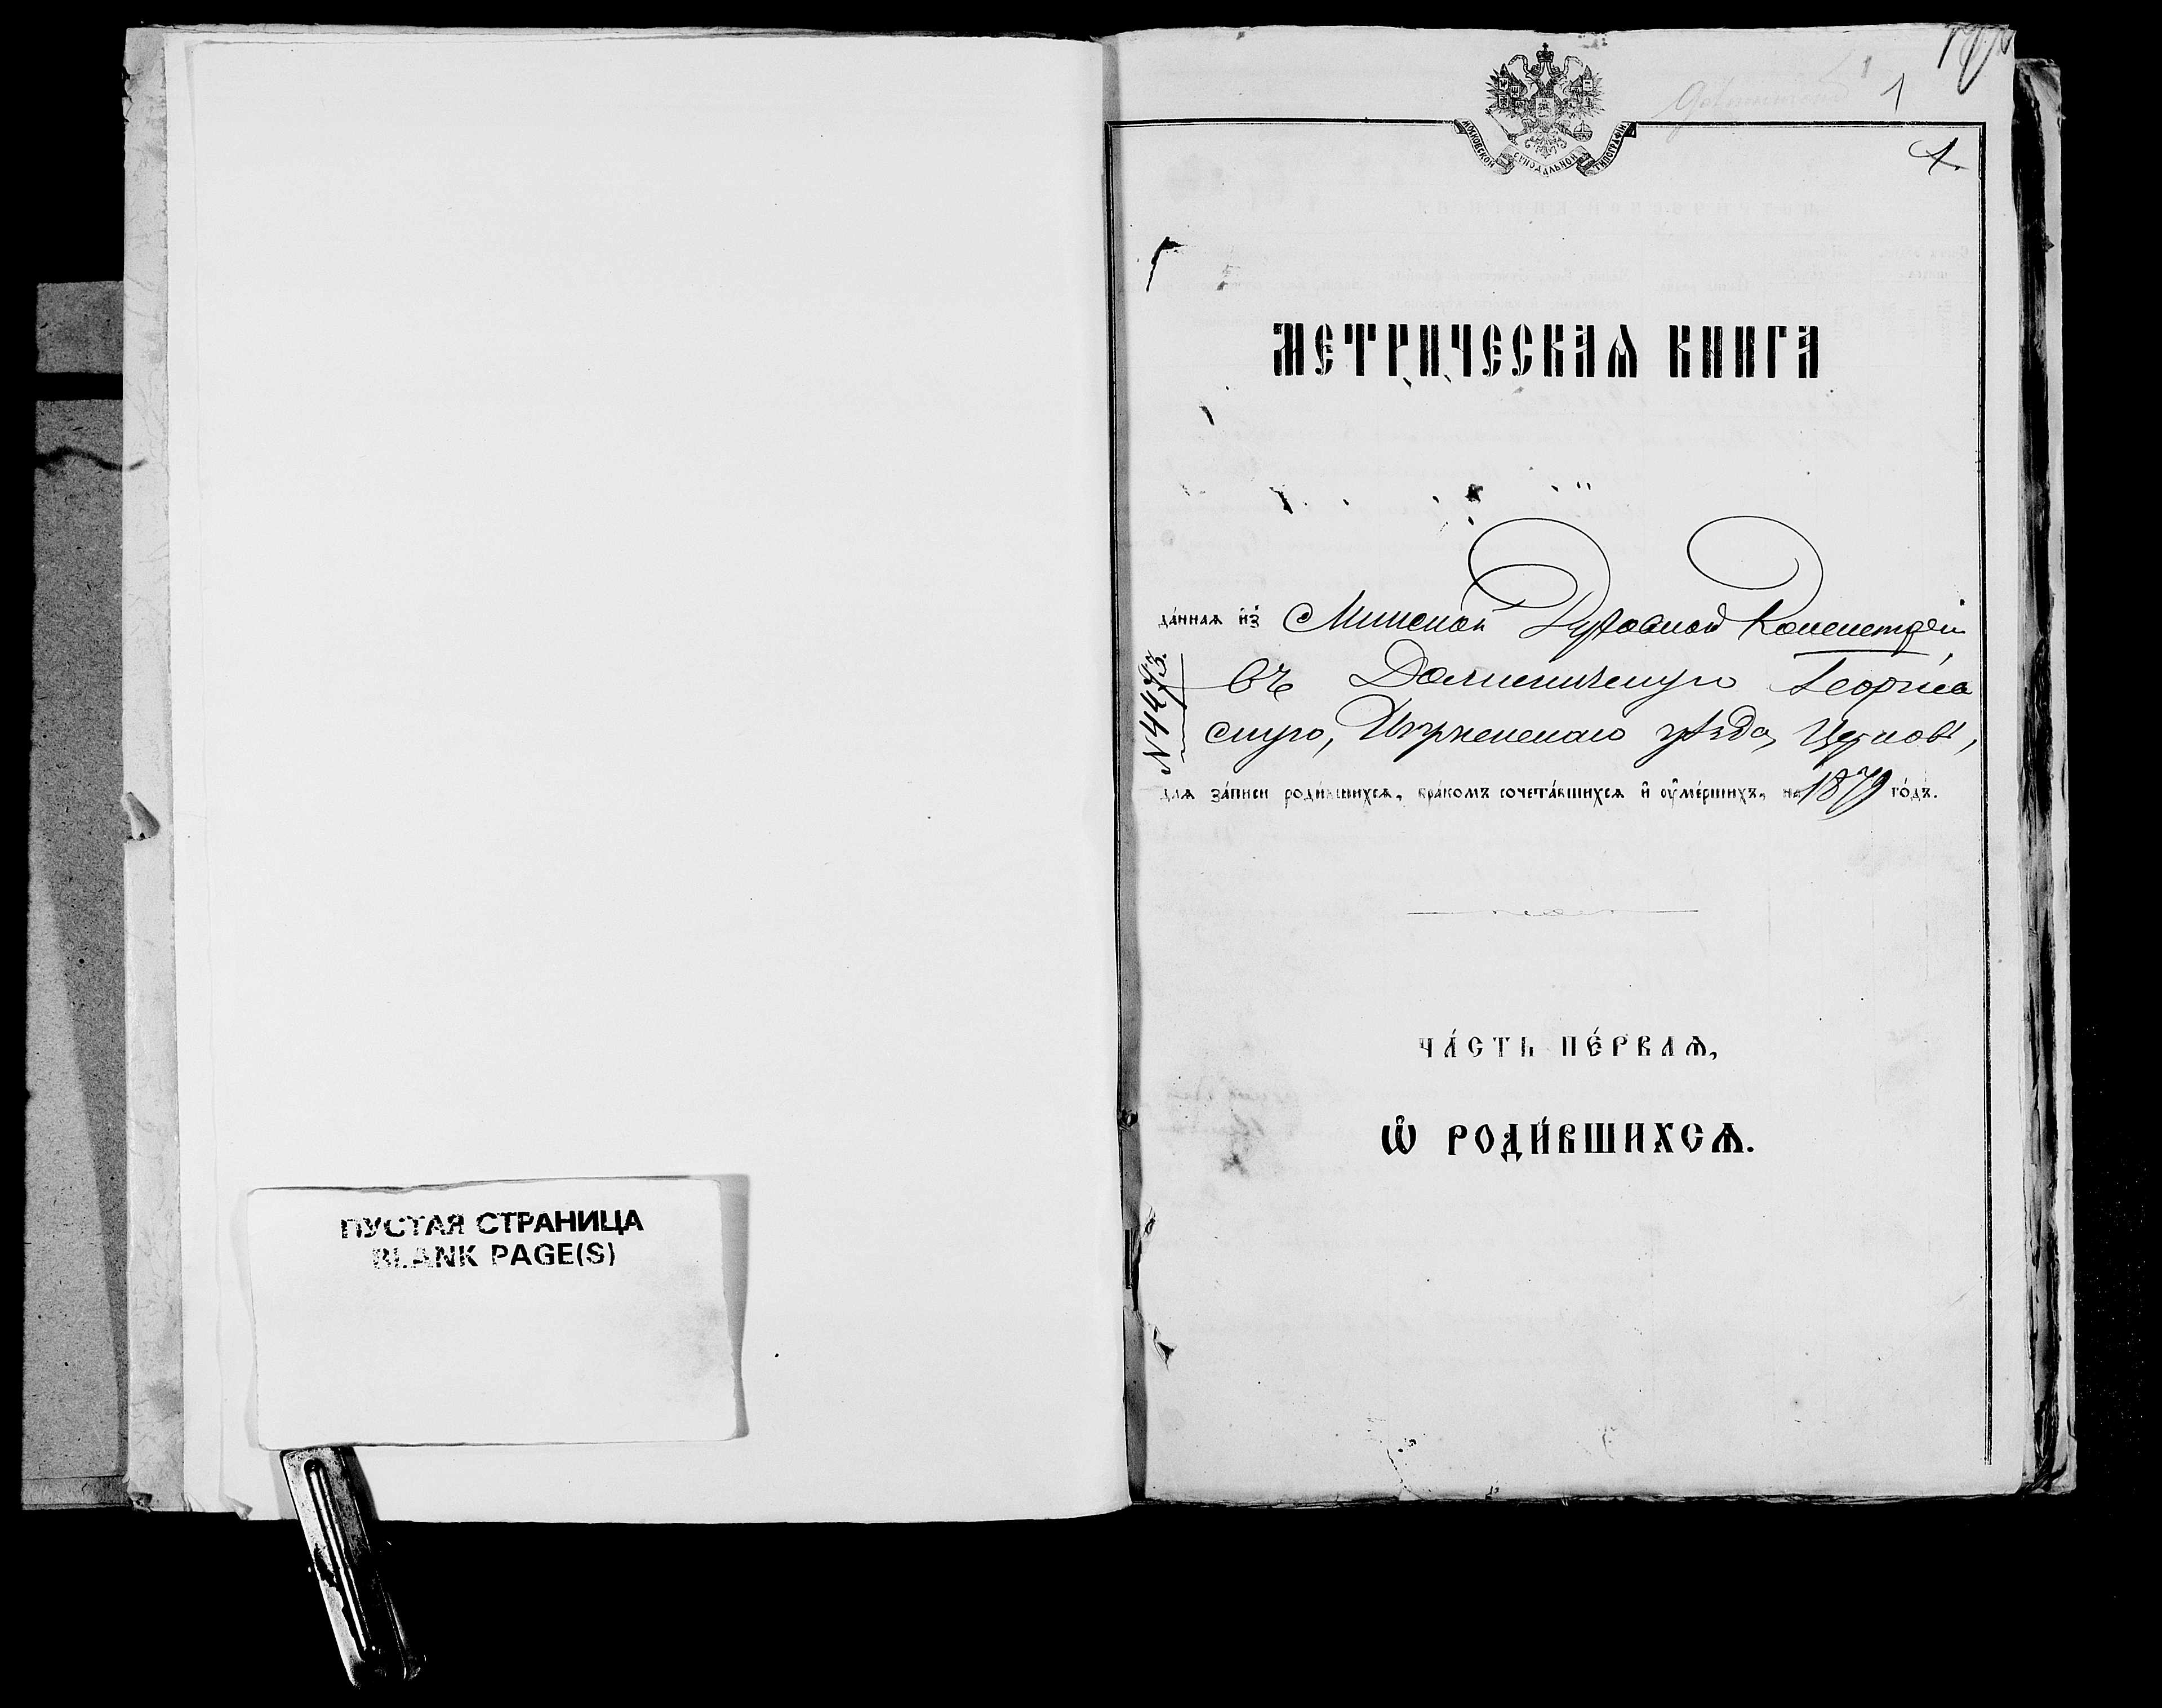 ПУСТАЯ СТРАНИЦА
BLANK PAGE(S)
1
1.
МОСКОВСКОЙ СУНОДАЛЬНОЙ ТИПОГРАФІИ
МЕТРИЧЕСКАѦ КНИГА
да́ннаѧ и҆з̾ Минской Духовной Консисторіи
№ 4473
въ Долничскую Георгіев
скую, Игуменскаго уѣзда, Церковь,
длѧ за́писи роди́вшихсѧ, бра́комъ сочета́вшихсѧ и҆ ᲂу҆ме́ршихъ, на 1879 го́дъ.
ЧА́СТЬ ПЕ́РВАѦ,
Ѽ РОДИ́ВШИХСѦ.